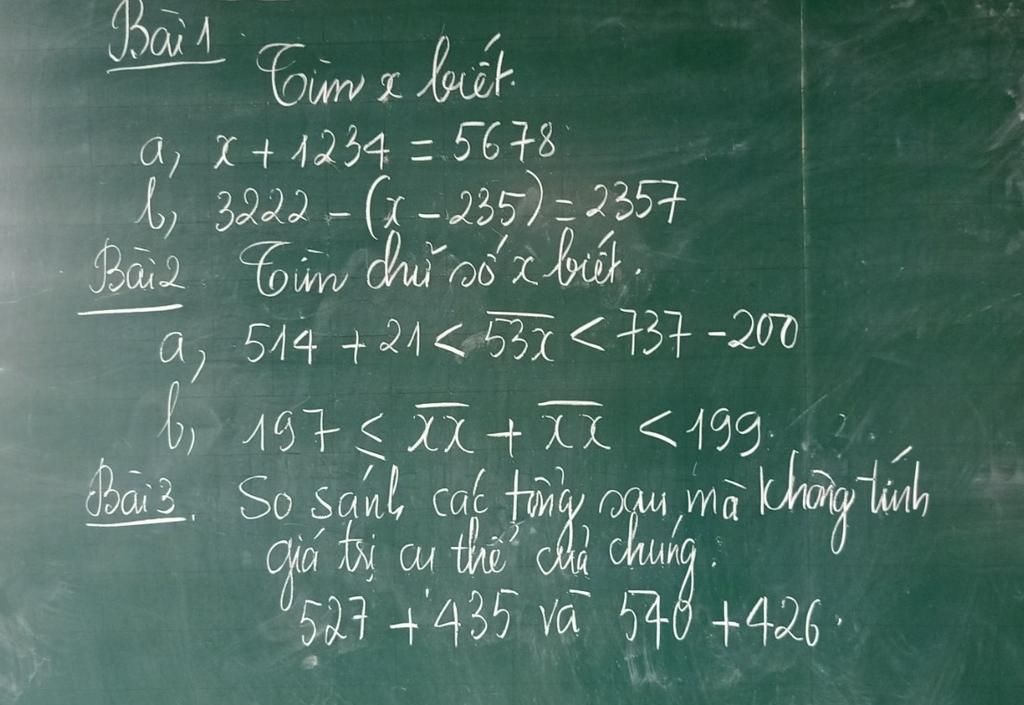 Bài 1
Tìm x biết.
a, x + 1234 = 5678
b, 3222 - (x - 235) = 2357
Bài 2 Tìm chữ số x biết.
a, 514 + 21 < 53x̅ < 737 - 200
b, 197 ≤ x̅x̅ + x̅x̅ < 199.
Bài 3. So sánh các tổng sau mà không tính
giá trị cụ thể của chúng.
527 + 435 và 540 + 426.